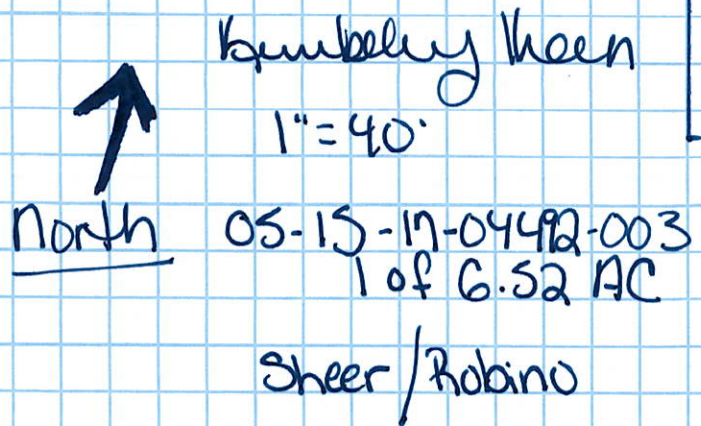 Kimberly Koon
1" = 40'
North
05-15-17-04492-003
1 of 6.52 AC
Sheer / Robino